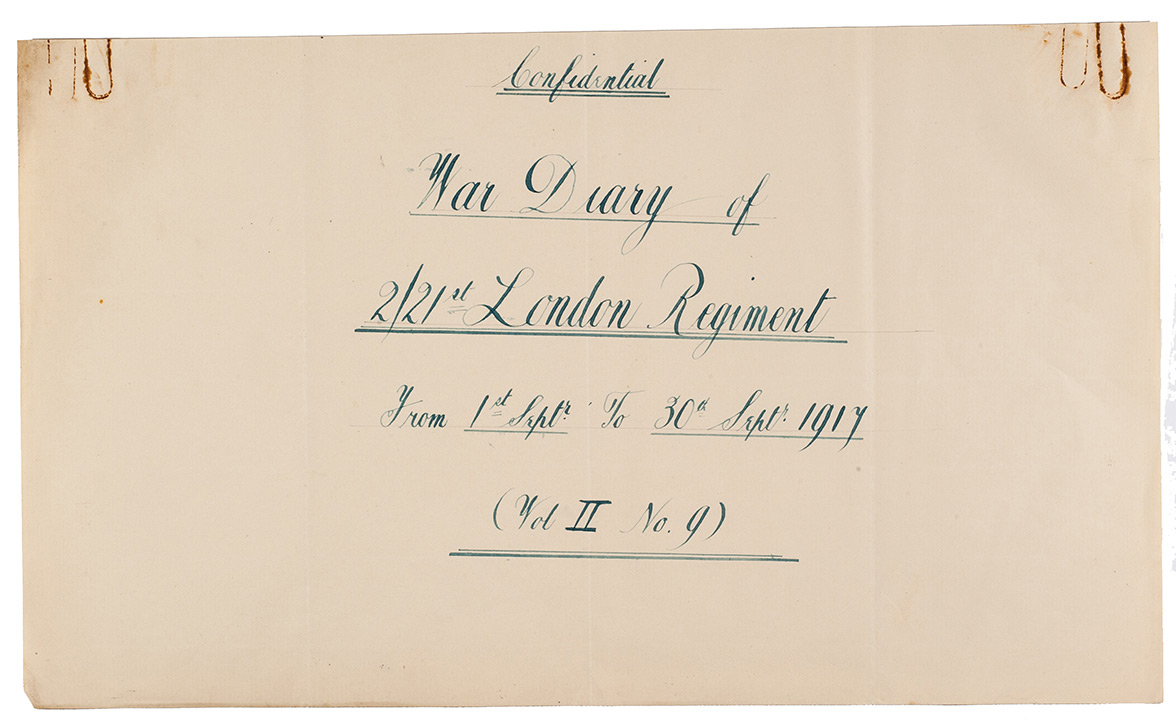 Confidential
War Diary of
2/21st London Regiment
From 1st Septr. To 30th Septr. 1917
(Vol II No. 9)